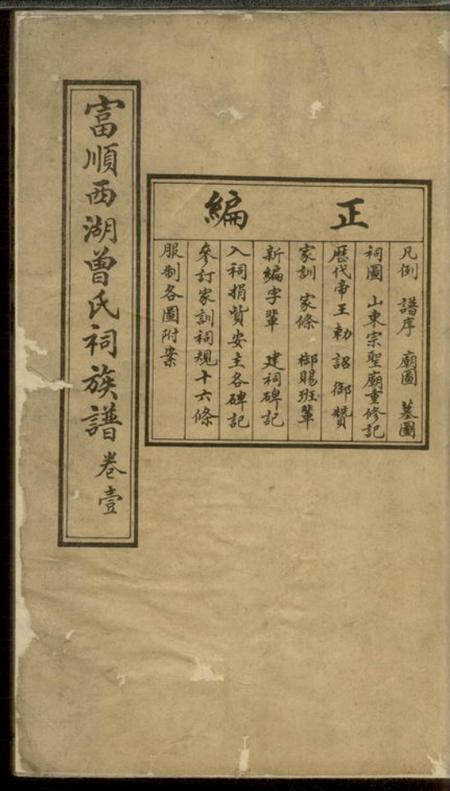 富順西湖曾氏祠族譜 卷壹
正編
凡例 譜序 廟圖 墓圖
祠圖 山東宗聖廟重修記
歷代帝王勅詔御贊
家訓 家條 御賜班輩
新編字輩 建祠碑記
入祠捐貲安主各碑記
參訂家訓祠規十六條
服制各圖附案